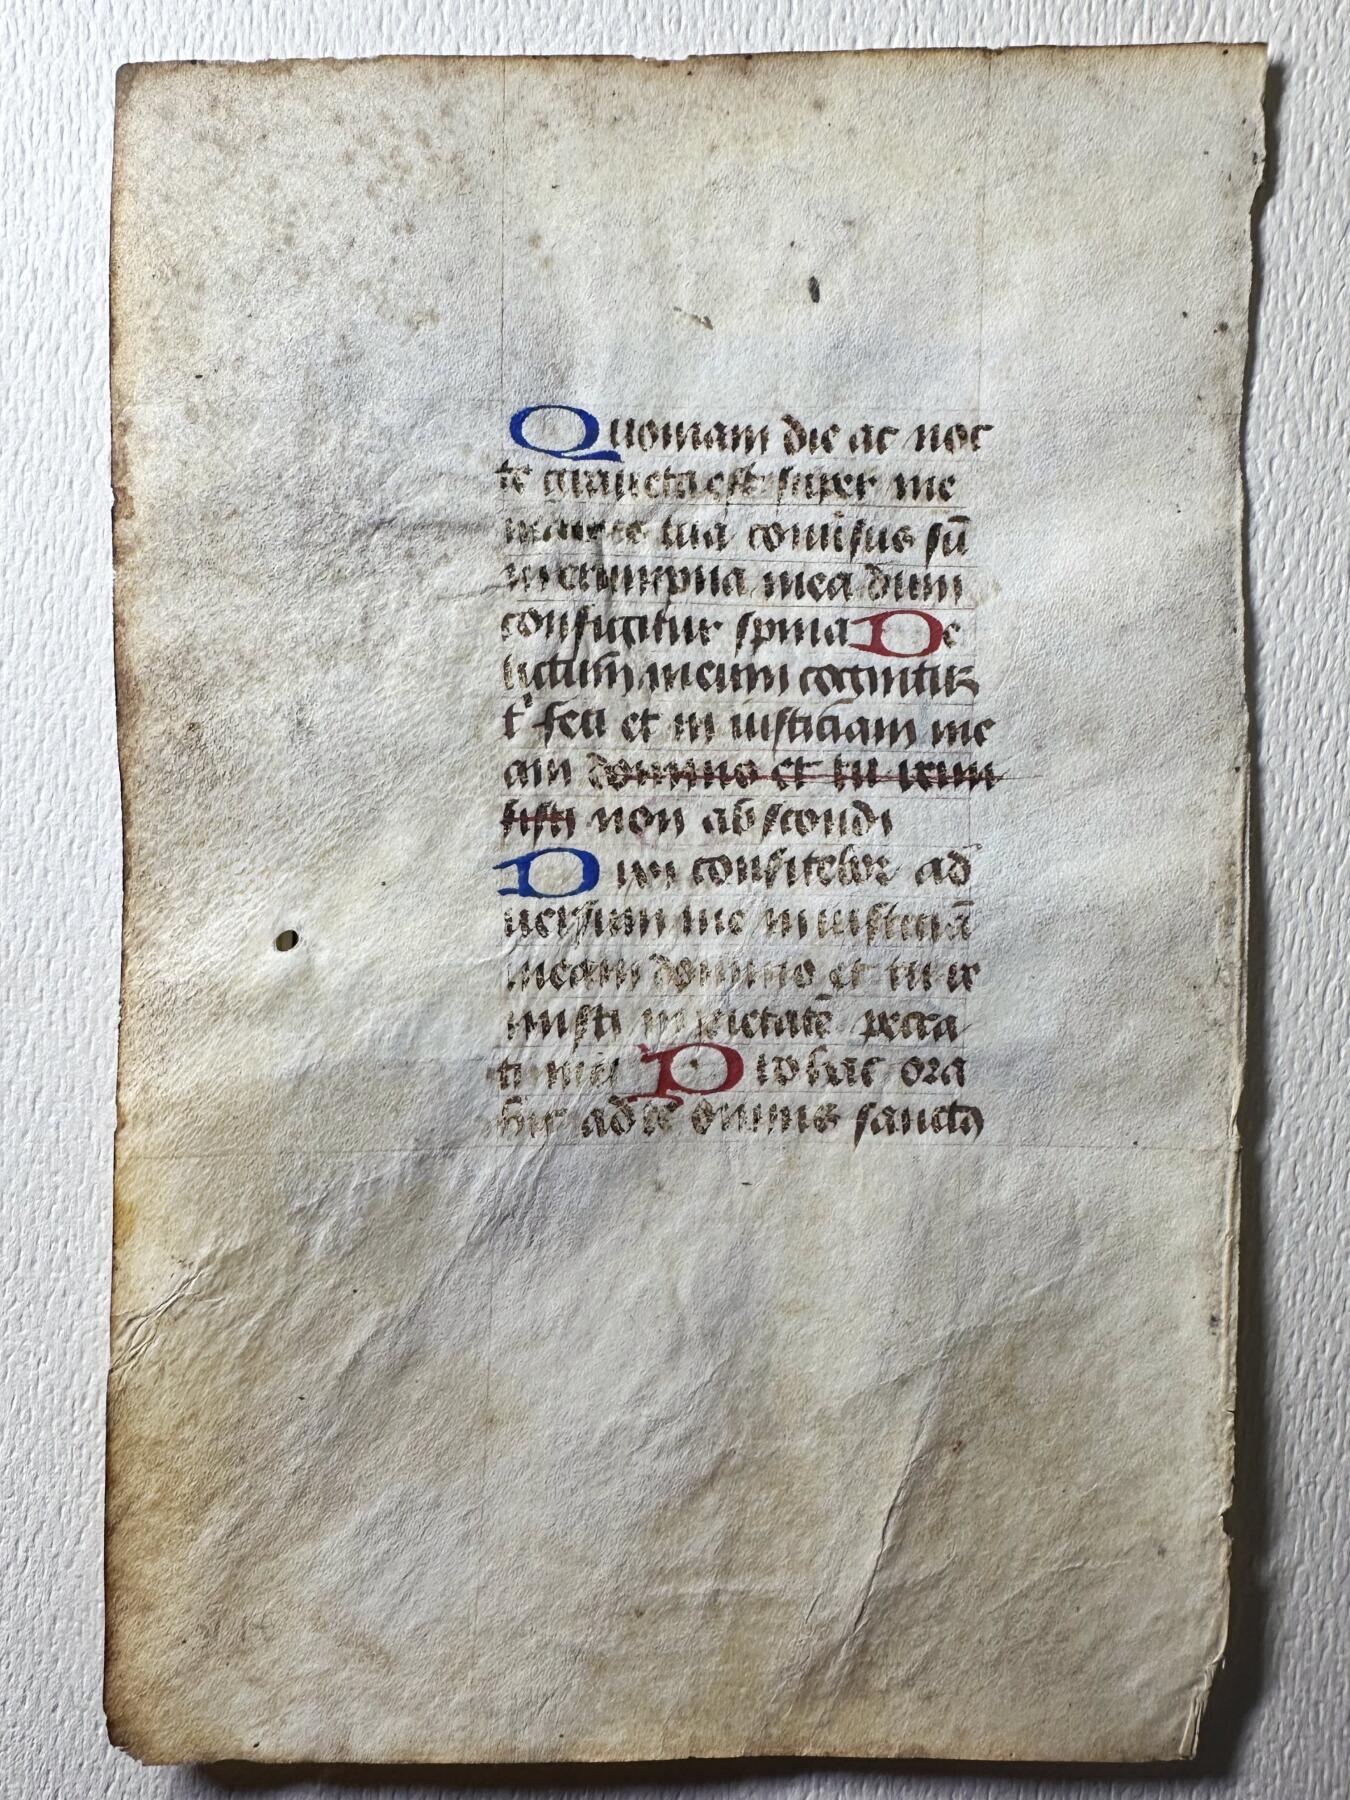 Quoniam die ac noc
te grauata est super me
manus tua conuersus sū
in erumpna mea dum
configitur spina De
lictum meum cognitū
t feci et in iusticiam me
am domino et tu remi
sisti non abscondi
Dixi confitebor ad
uersum me iniusticiā
meam domino et tu re
misisti impietatē pecca
ti mei Pro hac ora
bit ad te omnis sanctus